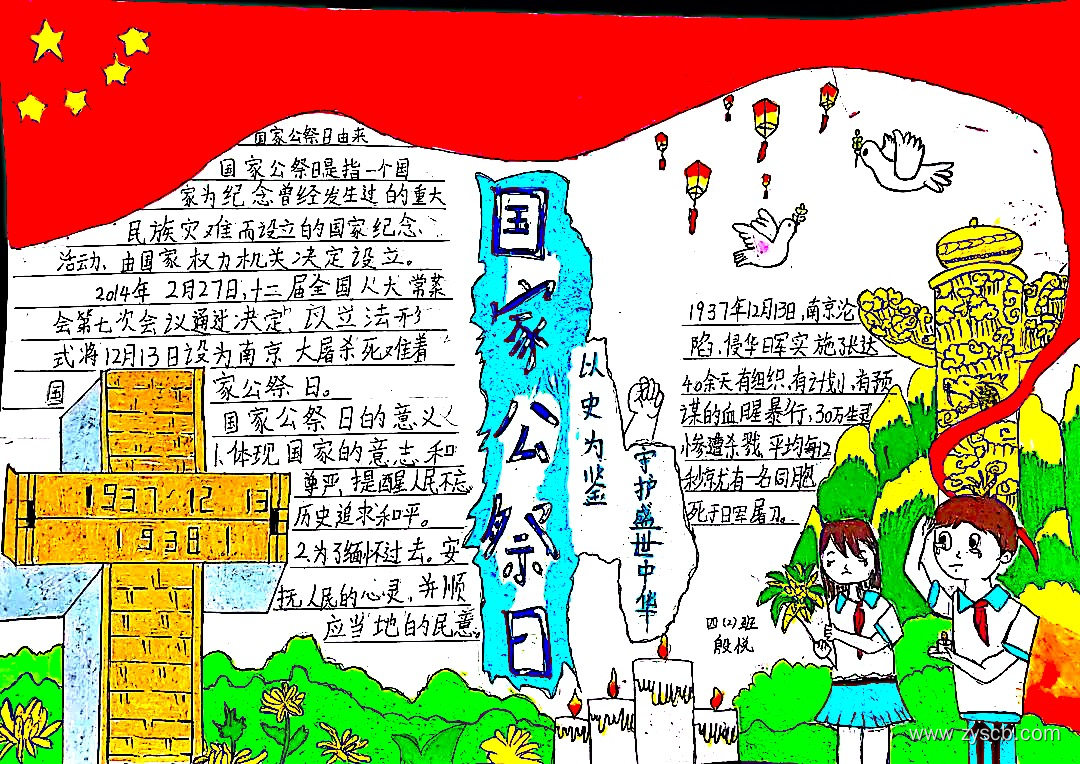 国家公祭日由来
国家公祭日是指一个国
家为纪念曾经发生过的重大
民族灾难而设立的国家纪念
活动、由国家权力机关决定设立。
2014年 2月27日,十二届全国人大常菜
会第七次会议通过决定,以立法形
式将12月13日设为南京大屠杀死难着
国
家公祭日。
国家公祭日的意义
1.体现国家的意志和
尊严,提醒人民不忘
历史追求和平。
2.为了缅怀过去。安
抚人民的心灵,并顺
应当地的民意。
1937 12 13
1938 1
国家公祭日
以史为鉴
守护盛世中华
1937年12月13日,南京沦
陷、侵华日军实施张达
40余天有组织、有计划、有预
谋的血腥暴行,30万生灵
惨遭杀戮,平均每12
秒就有一名同胞
死于日军屠刀。
四(2)班
殷悦
www.zyscb.com